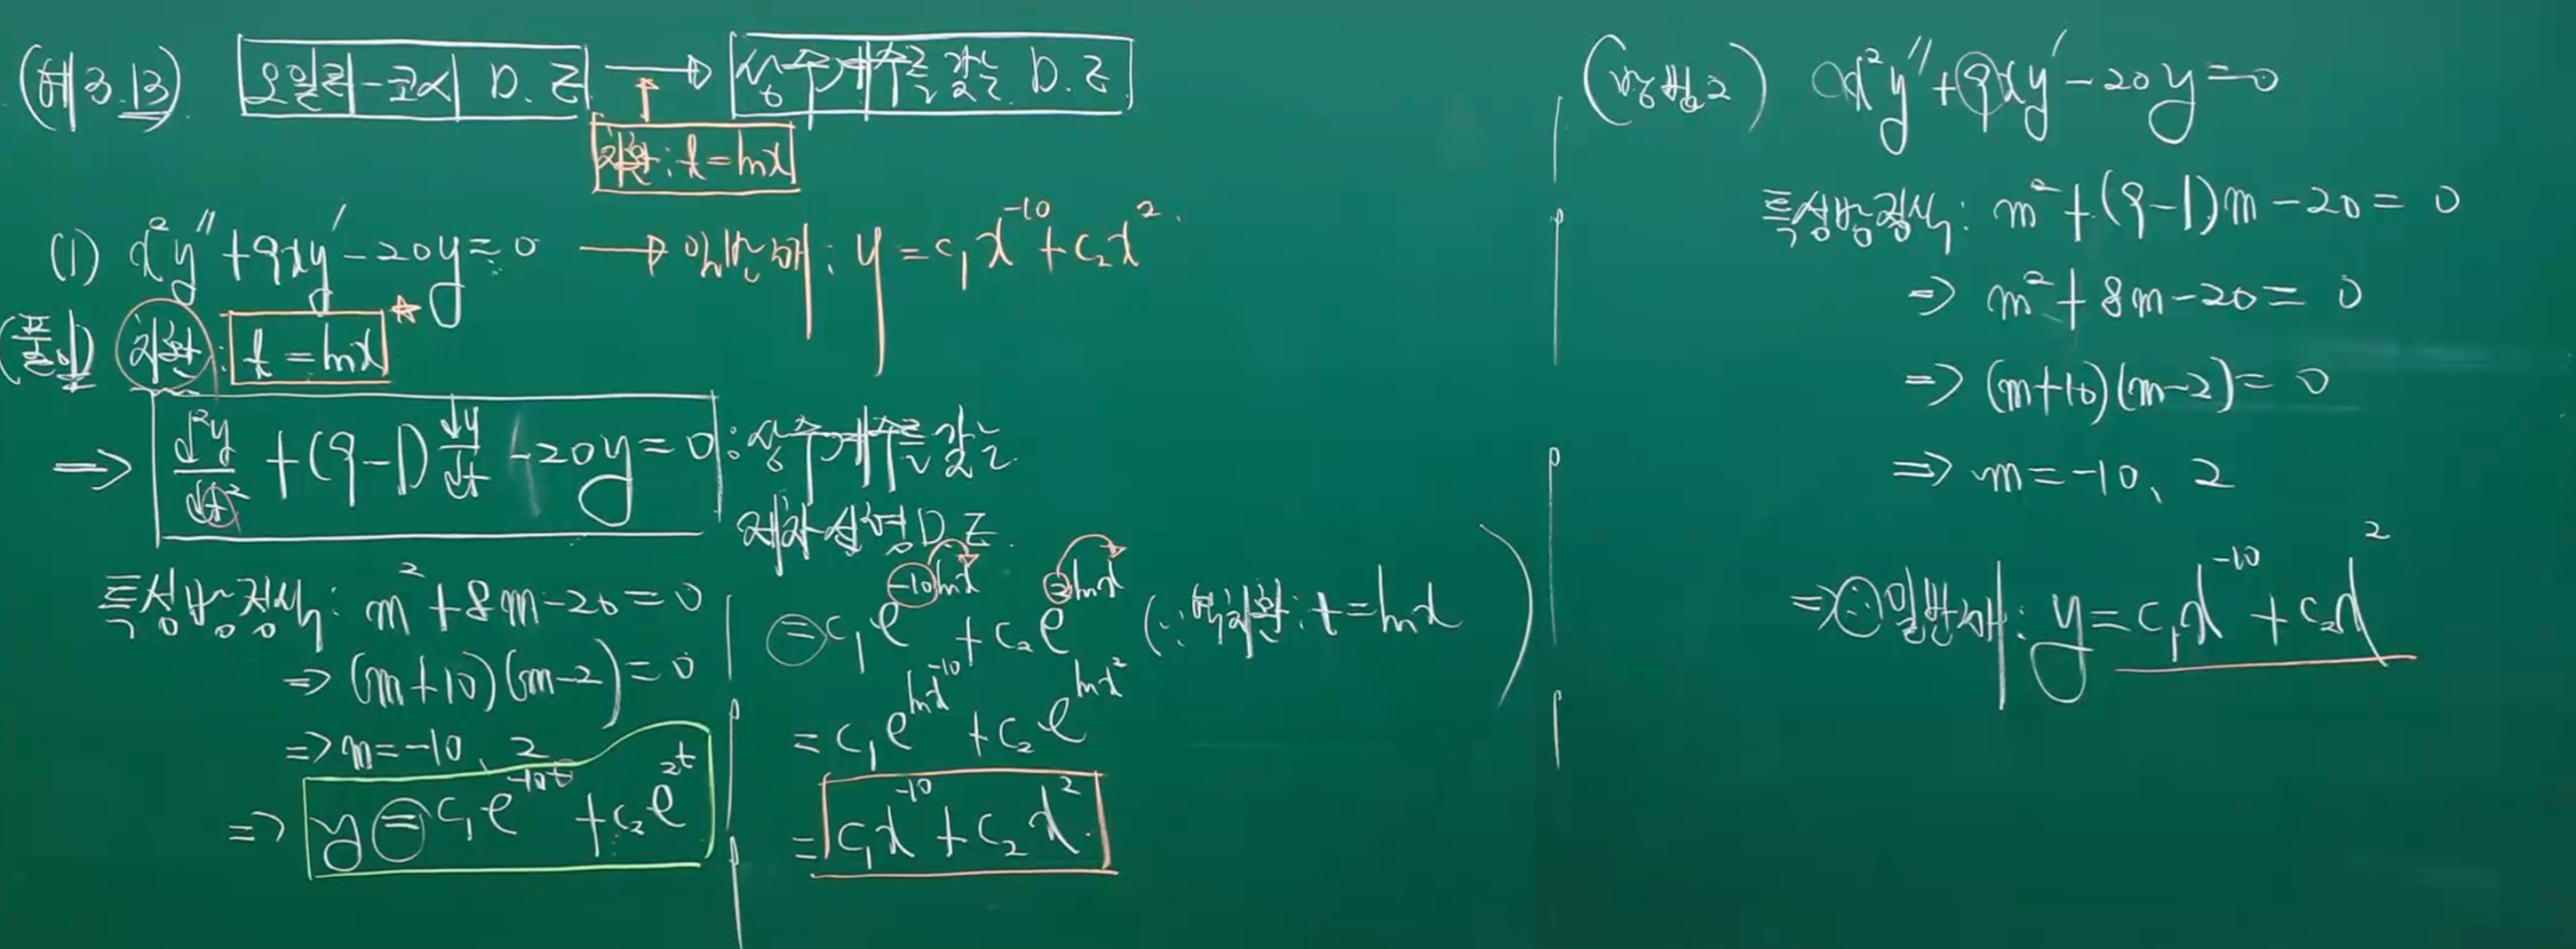 (예 3.13) 오일러-코시 D.E → 상수계수를 갖는 D.E
치환: t=lnx
(1) x²y″+9xy′-20y=0 → 일반해: y=c₁x⁻¹⁰+c₂x²
(풀이) 치환: t=lnx
⇒ d²y/dt² +(9-1)dy/dt -20y=0 : 상수계수를 갖는
제차 선형 D.E.
특성방정식: m²+8m-20=0
⇒ (m+10)(m-2)=0
⇒ m=-10, 2
⇒ y=c₁e^(-10t)+c₂e^(2t)
=c₁e^(-10lnx)+c₂e^(2lnx) (∵ 역치환: t=lnx)
=c₁e^(lnx⁻¹⁰)+c₂e^(lnx²)
=c₁x⁻¹⁰+c₂x²
(방법2) x²y″+9xy′-20y=0
특성방정식: m²+(9-1)m-20=0
⇒ m²+8m-20=0
⇒ (m+10)(m-2)=0
⇒ m=-10, 2
⇒ ∴ 일반해: y=c₁x⁻¹⁰+c₂x²